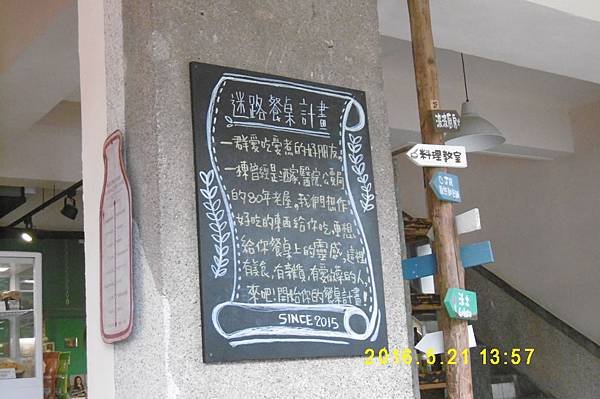 迷路餐桌計畫
一群愛吃愛煮的好朋友,
一棟曾經是酒家、醫院、公賣局
的80年老屋,我們想作
好吃的東西給你吃,更想
給你餐桌上的靈感,這裡
有美食,有雜貨,有愛做菜的人,
來吧!開始你的餐桌計畫!
SINCE 2015
料理教室
2016.5.21 13:57